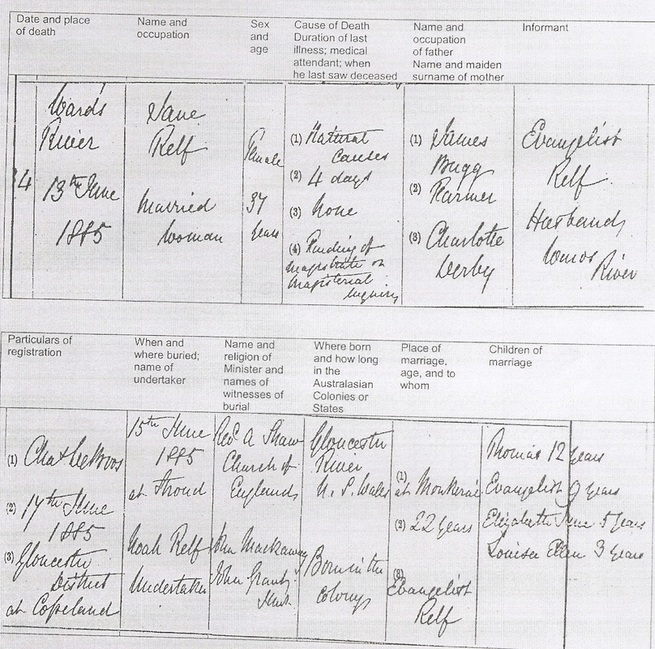 Date and place
of death
Name and
occupation
Sex
and
age
Cause of Death
Duration of last
illness; medical
attendant; when
he last saw deceased
Name and
occupation
of father
Name and maiden
surname of mother
Informant
14
Wards
River
13th June
1885
Jane
Relf
Married
Woman
Female
37
Years
(1) Natural
Causes
(2) 4 days
(3) None
(4) Finding of
magistrate on
magisterial
inquiry
(1) James
Bugg
(2) Farmer
(3) Charlotte
Derby
Evangelist
Relf
Husband
River
Particulars of
registration
When and
where buried;
name of
undertaker
Name and
religion of
Minister and
names of
witnesses of
burial
Where born
and how long
in the
Australasian
Colonies or
States
Place of
marriage,
age, and to
whom
Children of
marriage
(1) Chas
(2) 17th June
1885
(3) Gloucester
District
at Copeland
15th June
1885
at Stroud
Noah Relf
Undertaker
Revd A Shaw
Church of
England
John Mackaway
John
Gloucester
River
N. S. Wales
Born in the
Colony
(1)
at Monkerai
(2) 22 years
(3)
Evangelist
Relf
Thomas 12 years
Evangelist 9 years
Elizabeth June 5 years
Louisa Ellen 3 years